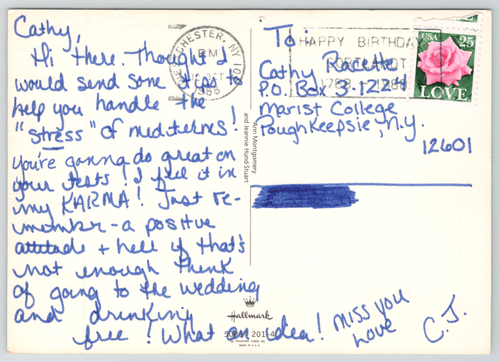 Cathy,
Hi there. Thought I
would send some
help you handle the
"stress" of midterms!
you're gonna do great on
your tests! I feel it in
my KARMA! Just re-
member - a positive
attitude + hell if that's
not enough think
of going to the wedding
and drinking
free! What an idea! miss you
Love C.J.
CHESTER, NY 10
PM
1988
HAPPY BIRTHDAY
USA 25
LOVE
To:
Cathy
P.O. Box 3-1224
Marist College
Poughkeepsie, N.Y.
12601
Ann Montgomery
and Jeannie Hund Stuart
Hallmark